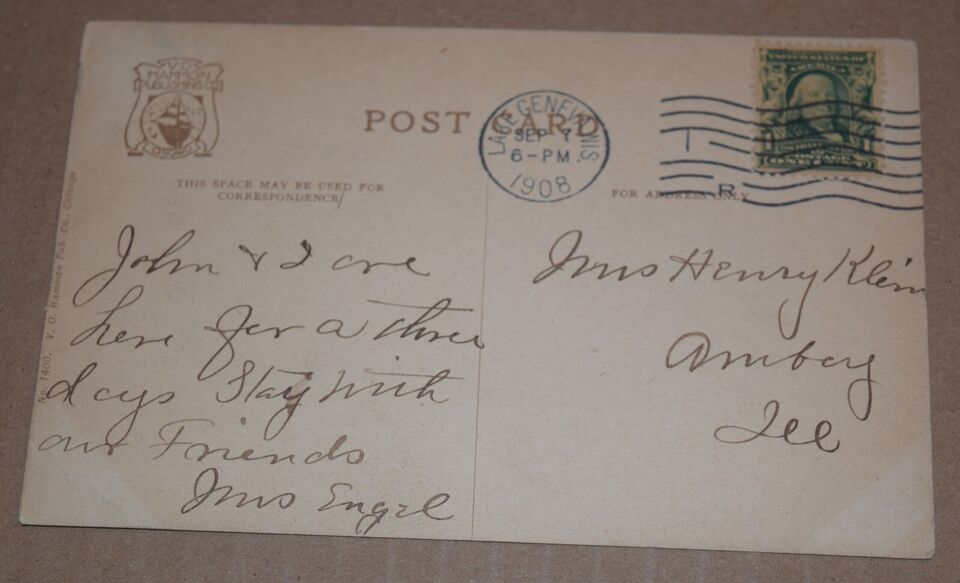 V.O.
HAMMON
PUBLISHING CO
CHICAGO
POST CARD
LAKE GENEVA, WIS
SEP 7
6-PM
1908
UNITED STATES OF
AMERICA
R
THIS SPACE MAY BE USED FOR
CORRESPONDENCE
FOR ADDRESS ONLY
No. 1400. V. O. Hammon Pub. Co., Chicago
John & I are
here for a three
days Stay with
our Friends
Mrs Engel
Mrs Henry Klein
Amberg
Ill